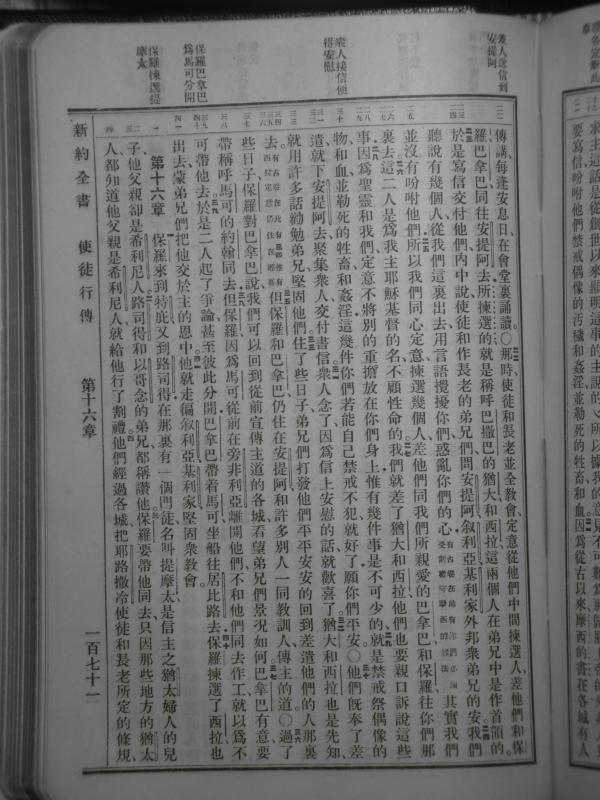 衆人送信到安提阿
衆人接信便得安慰
保羅巴拿巴爲馬可分開
保羅揀選提摩太
傳講、每逢安息日在會堂裏誦讀。○那時使徒和長老並全教會定意從他們中間揀選人、差他們和保
羅巴拿巴同往安提阿去所揀選的就是稱呼巴撒巴的猶大和西拉這兩個人在弟兄中是作首領的。
於是寫信交付他們內中說、使徒和作長老的弟兄們問安提阿敘利亞基利家外邦衆弟兄的安我們
聽說有幾個人從我們這裏出去用言語攪擾你們惑亂你們的心。有古卷在此有你們必須受割禮守摩西的律法其實我們
並沒有吩咐他們所以我們同心定意揀選幾個人、差他們同我們所親愛的巴拿巴和保羅往你們那
裏去這二人是爲我主耶穌基督的名不顧性命的我們就差了猶大和西拉他們也要親口訴說這些
事因爲聖靈和我們定意不將別的重擔放在你們身上惟有幾件事是不可少的就是禁戒祭偶像的
物和血並勒死的牲畜和姦淫這幾件你們若能自己禁戒不犯就好了願你們平安○他們旣奉了差
遣就下安提阿去聚集衆人交付書信衆人念了因爲信上安慰的話就歡喜了猶大和西拉也是先知、
就用許多話勸勉弟兄堅固他們住了些日子弟兄們打發他們平平安安的回到差遣他們的人那裏
去有古卷在此有惟有西拉定意仍住在那裏但保羅和巴拿巴仍住在安提阿和許多別人一同教訓人傳主的道○過了
些日子保羅對巴拿巴說我們可以回到從前宣傳主道的各城看望弟兄們景況如何巴拿巴有意要
帶稱呼馬可的約翰同去但保羅因爲馬可從前在旁非利亞離開他們不和他們同去作工就以爲不
可帶他去於是二人起了爭論甚至彼此分開巴拿巴帶着馬可坐船往居比路去保羅揀選了西拉也
出去蒙弟兄們把他交於主的恩中他就走徧叙利亞基利家堅固衆教會。
第十六章 保羅來到特庇又到路司得在那裏有一個門徒名叫提摩太是信主之猶太婦人的兒
子他父親卻是希利尼人路司得和以哥念的弟兄都稱讚他保羅要帶他同去只因那些地方的猶太
人都知道他父親是希利尼人就給他行了割禮他們經過各城把耶路撒冷使徒和長老所定的條規、
新約全書 使徒行傳 第十六章 一百七十一